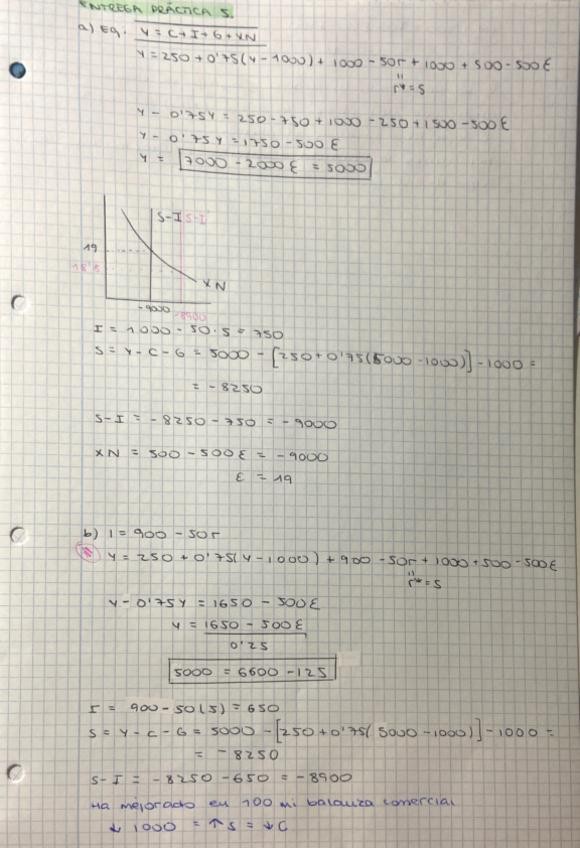 ENTREGA PRÁCTICA 5.
a) EQ. Y = C + I + G + XN
Y = 250 + 0'75(Y - 1000) + 1000 - 50r + 1000 + 500 - 500ε
"
r* = 5
Y - 0'75Y = 250 - 750 + 1000 - 250 + 1500 - 500ε
Y - 0'75Y = 1750 - 500ε
Y = 7000 - 2000ε = 5000
S-I S-I'
19
18'8
XN
-9000 -8900
I = 1000 - 50·5 = 750
S = Y - C - G = 5000 - [250 + 0'75(5000 - 1000)] - 1000 =
= -8250
S-I = -8250 - 750 = -9000
XN = 500 - 500ε = -9000
ε = 19
b) I = 900 - 50r
Y = 250 + 0'75(Y - 1000) + 900 - 50r + 1000 + 500 - 500ε
"
r* = 5
Y - 0'75Y = 1650 - 500ε
Y = 1650 - 500ε
0'25
5000 = 6600 - 125
I = 900 - 50(5) = 650
S = Y - C - G = 5000 - [250 + 0'75(5000 - 1000)] - 1000 =
= -8250
S-I = -8250 - 650 = -8900
Ha mejorado en 100 mi balanza comercial
↓ 1000 = ↑S = ↓C